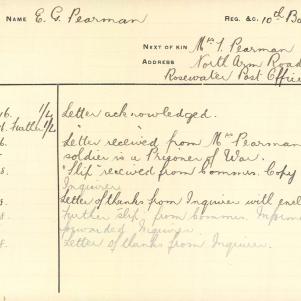 NAME E. G. Pearman REG. &c. 10th Ba
NEXT OF KIN Mrs I. Pearman
ADDRESS North Arm Road
Rosewater Post Office
6. 1/4 Letter acknowledged.
Further 1/2
6. "Letter received from Mrs Pearman
soldier is a Prisoner of War.
8. "Slip" received from Commrs. Copy
Inquirer
8. Letter of thanks from Inquirer with encl
8. Further slip from Commrs. Inform
forwarded Inquirer.
8. Letter of thanks from Inquirer.